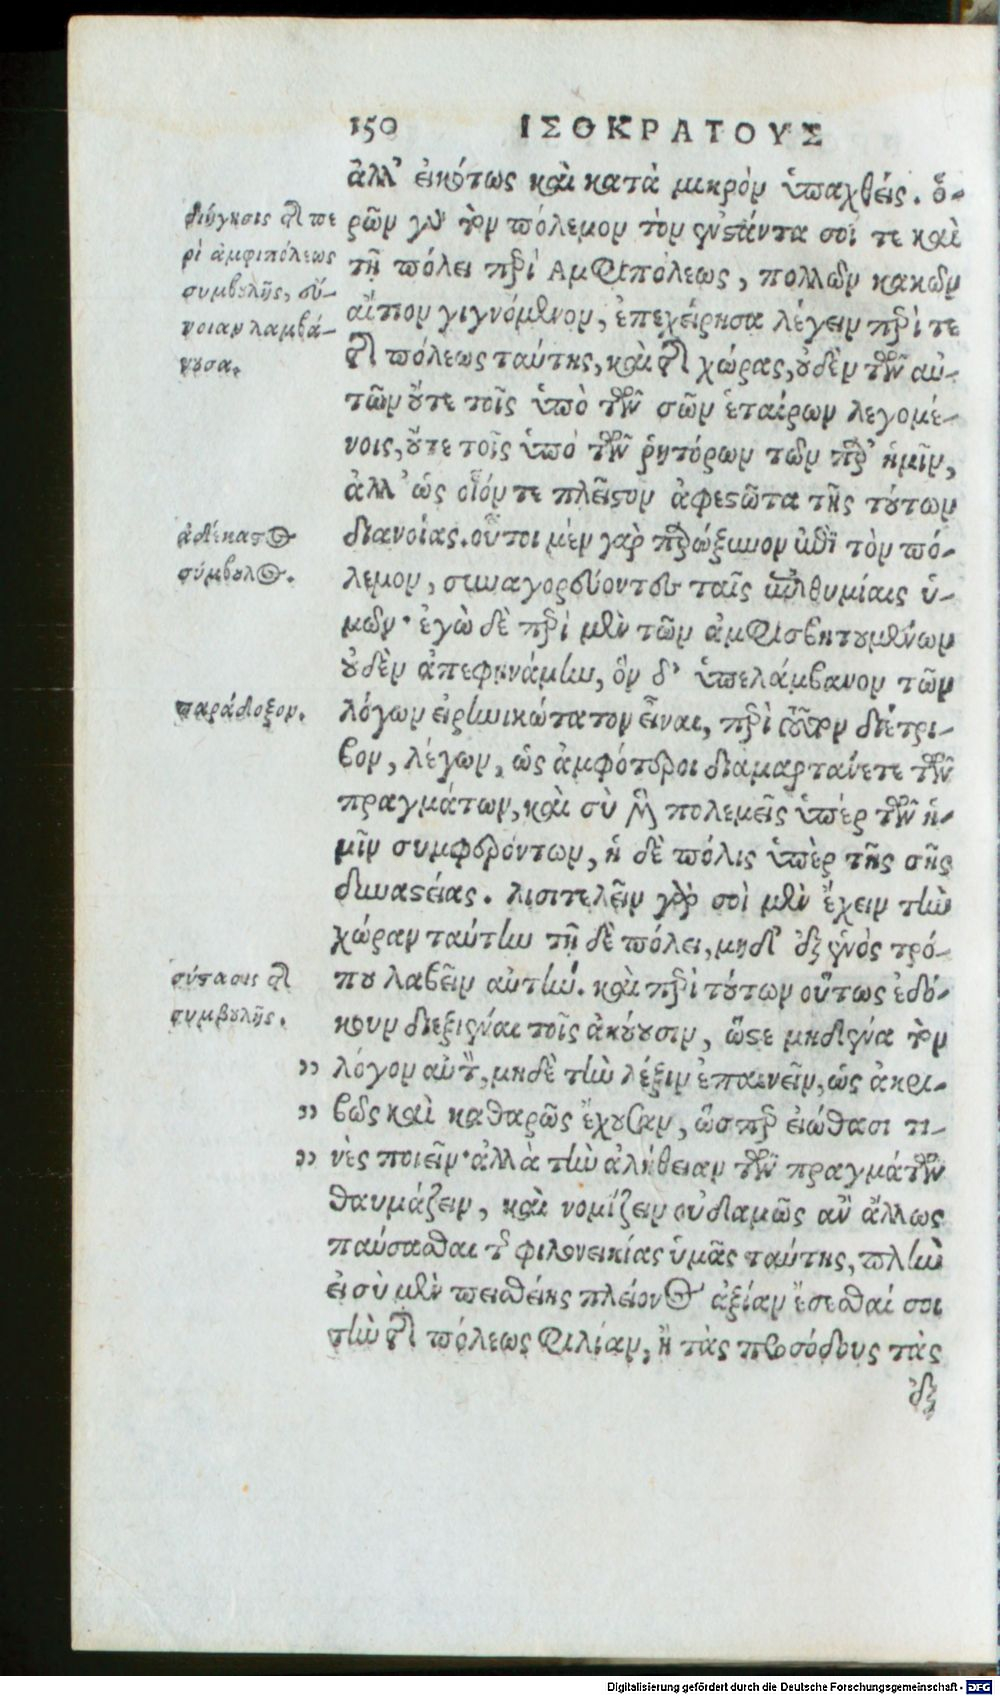 150 ΙΣΟΚΡΑΤΟΥΣ
ἀλλ' εἰκότως καὶ κατὰ μικρὸν ὑπαχθείς. ὁ-
ρῶν γὰρ τὸν πόλεμον τὸν ἐνστάντα σοί τε καὶ
τῇ πόλει περὶ Ἀμφιπόλεως, πολλῶν κακῶν
αἴτιον γιγνόμενον, ἐπεχείρησα λέγειν περί τε
τῆς πόλεως ταύτης, καὶ τῆς χώρας, οὐδὲν τῶν αὐ-
τῶν οὔτε τοῖς ὑπὸ τῶν σῶν ἑταίρων λεγομέ-
νοις, οὔτε τοῖς ὑπὸ τῶν ῥητόρων τῶν παρ' ἡμῖν,
ἀλλ' ὡς οἷόν τε πλεῖστον ἀφεστῶτα τῆς τούτων
διανοίας. οὗτοι μὲν γὰρ παρώξυνον ἐπὶ τὸν πό-
λεμον, συναγορεύοντες ταῖς ἐπιθυμίαις ὑ-
μῶν· ἐγὼ δὲ περὶ μὲν τῶν ἀμφισβητουμένων
οὐδὲν ἀπεφηνάμην, ὃν δ' ὑπελάμβανον τῶν
λόγων εἰρηνικώτατον εἶναι, περὶ τοῦτον διέτρι-
βον, λέγων, ὡς ἀμφότεροι διαμαρτάνετε τῶν
πραγμάτων, καὶ σὺ μὲν πολεμεῖς ὑπὲρ τῶν ἡ-
μῖν συμφερόντων, ἡ δὲ πόλις ὑπὲρ τῆς σῆς
δυναστείας. λυσιτελεῖν γὰρ σοὶ μὲν ἔχειν τὴν
χώραν ταύτην τῇ δὲ πόλει, μηδ' ἐξ ἑνὸς τρό-
που λαβεῖν αὐτήν. καὶ περὶ τούτων οὕτως ἐδό-
κουν διεξιέναι τοῖς ἀκούουσιν, ὥστε μηδένα τὸν
λόγον αὐτῶν, μηδὲ τὴν λέξιν ἐπαινεῖν, ὡς ἀκρι-
βῶς καὶ καθαρῶς ἔχουσαν, ὥσπερ εἰώθασί τι-
νὲς ποιεῖν· ἀλλὰ τὴν ἀλήθειαν τῶν πραγμάτων
θαυμάζειν, καὶ νομίζειν οὐδαμῶς ἂν ἄλλως
παύσασθαι τῆς φιλονεικίας ὑμᾶς ταύτης, πλὴν
εἰ σὺ μὲν πεισθείης πλείονος ἀξίαν ἔσεσθαί σοι
τὴν τῆς πόλεως φιλίαν, ἢ τὰς προσόδους τὰς
ἐξ
διήγησις τῆς πε
ρὶ ἀμφιπόλεως
συμβουλῆς, σύ-
νοιαν λαμβά-
νουσα.
ἀδέκαστος
σύμβουλος.
παράδοξον.
σύστασις τῆς
συμβουλῆς.
Digitalisierung gefördert durch die Deutsche Forschungsgemeinschaft - DFG